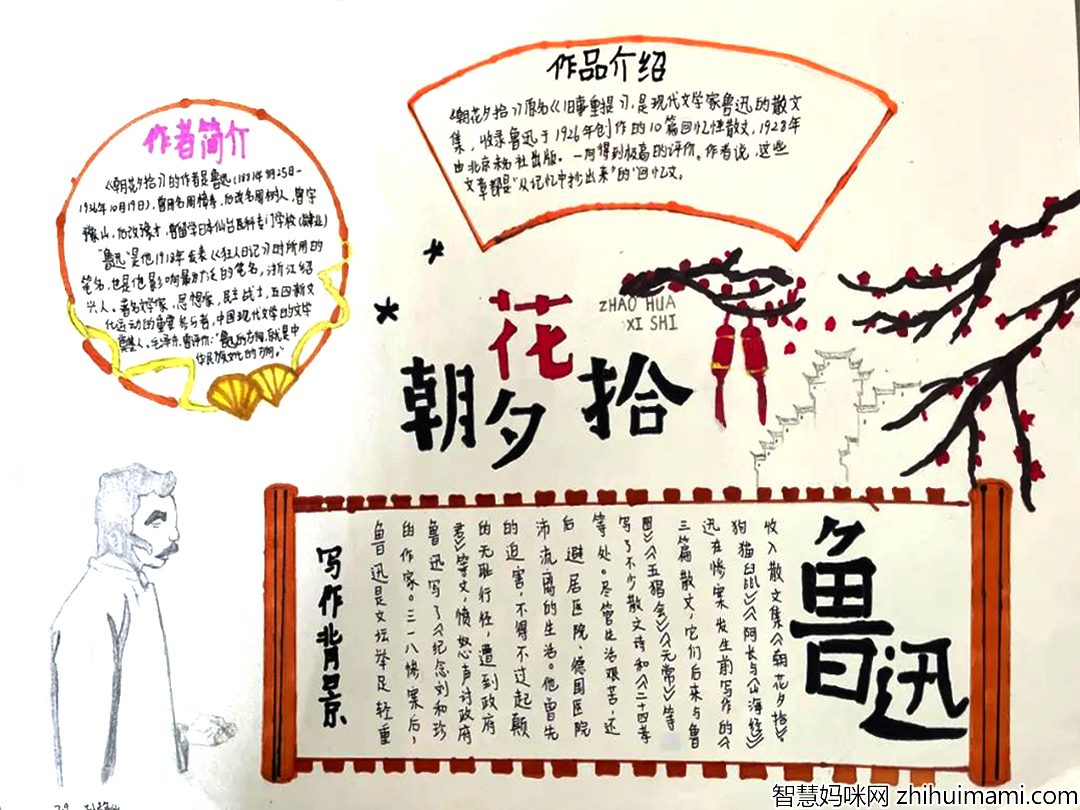 作品介绍
《朝花夕拾》原名《旧事重提》,是现代文学家鲁迅的散文
集,收录鲁迅于1926年创作的10篇回忆性散文,1928年
由北京未名社出版。一
得到极高的评价。作者说,这些
文章都是“从记忆中抄出来”的“回忆文。
作者简介
《朝花夕拾》的作者是鲁迅(1881年9月25日-
1936年10月19日),曾用名周樟寿,后改名周树人,曾字
豫山,后改豫才,曾留学日本仙台医科专门学校(肄业)
“鲁迅”是他1918年发表《狂人日记》时所用的
笔名,也是他影响最为广泛的笔名,浙江绍
兴人。著名文学家,思想家,民主战士,五四新文
化运动的重要参与者,中国现代文学的文学
奠基人。毛泽东曾评价:“鲁迅的方向,就是中
华民族文化的方向。”
花
ZHAO HUA
XI SHI
朝夕拾
鲁迅
写作背景
鲁迅是文坛举足轻重
的作家。三一八惨案后,
鲁迅写了《纪念刘和珍
君》等文,愤怒声讨政府
的无耻行径,遭到政府
的迫害,不得不过起颠
沛流离的生活。他曾先
后避居医院、德国医院
等处。尽管生活艰苦,还
写了不少散文诗和《二十四孝
图》《五猖会》《无常》等
三篇散文,它们后来与鲁
迅在惨案发生前写作的《
狗猫鼠》《阿长与《山海经》》
收入散文集《朝花夕拾》。
智慧妈咪网 zhihuimami.com